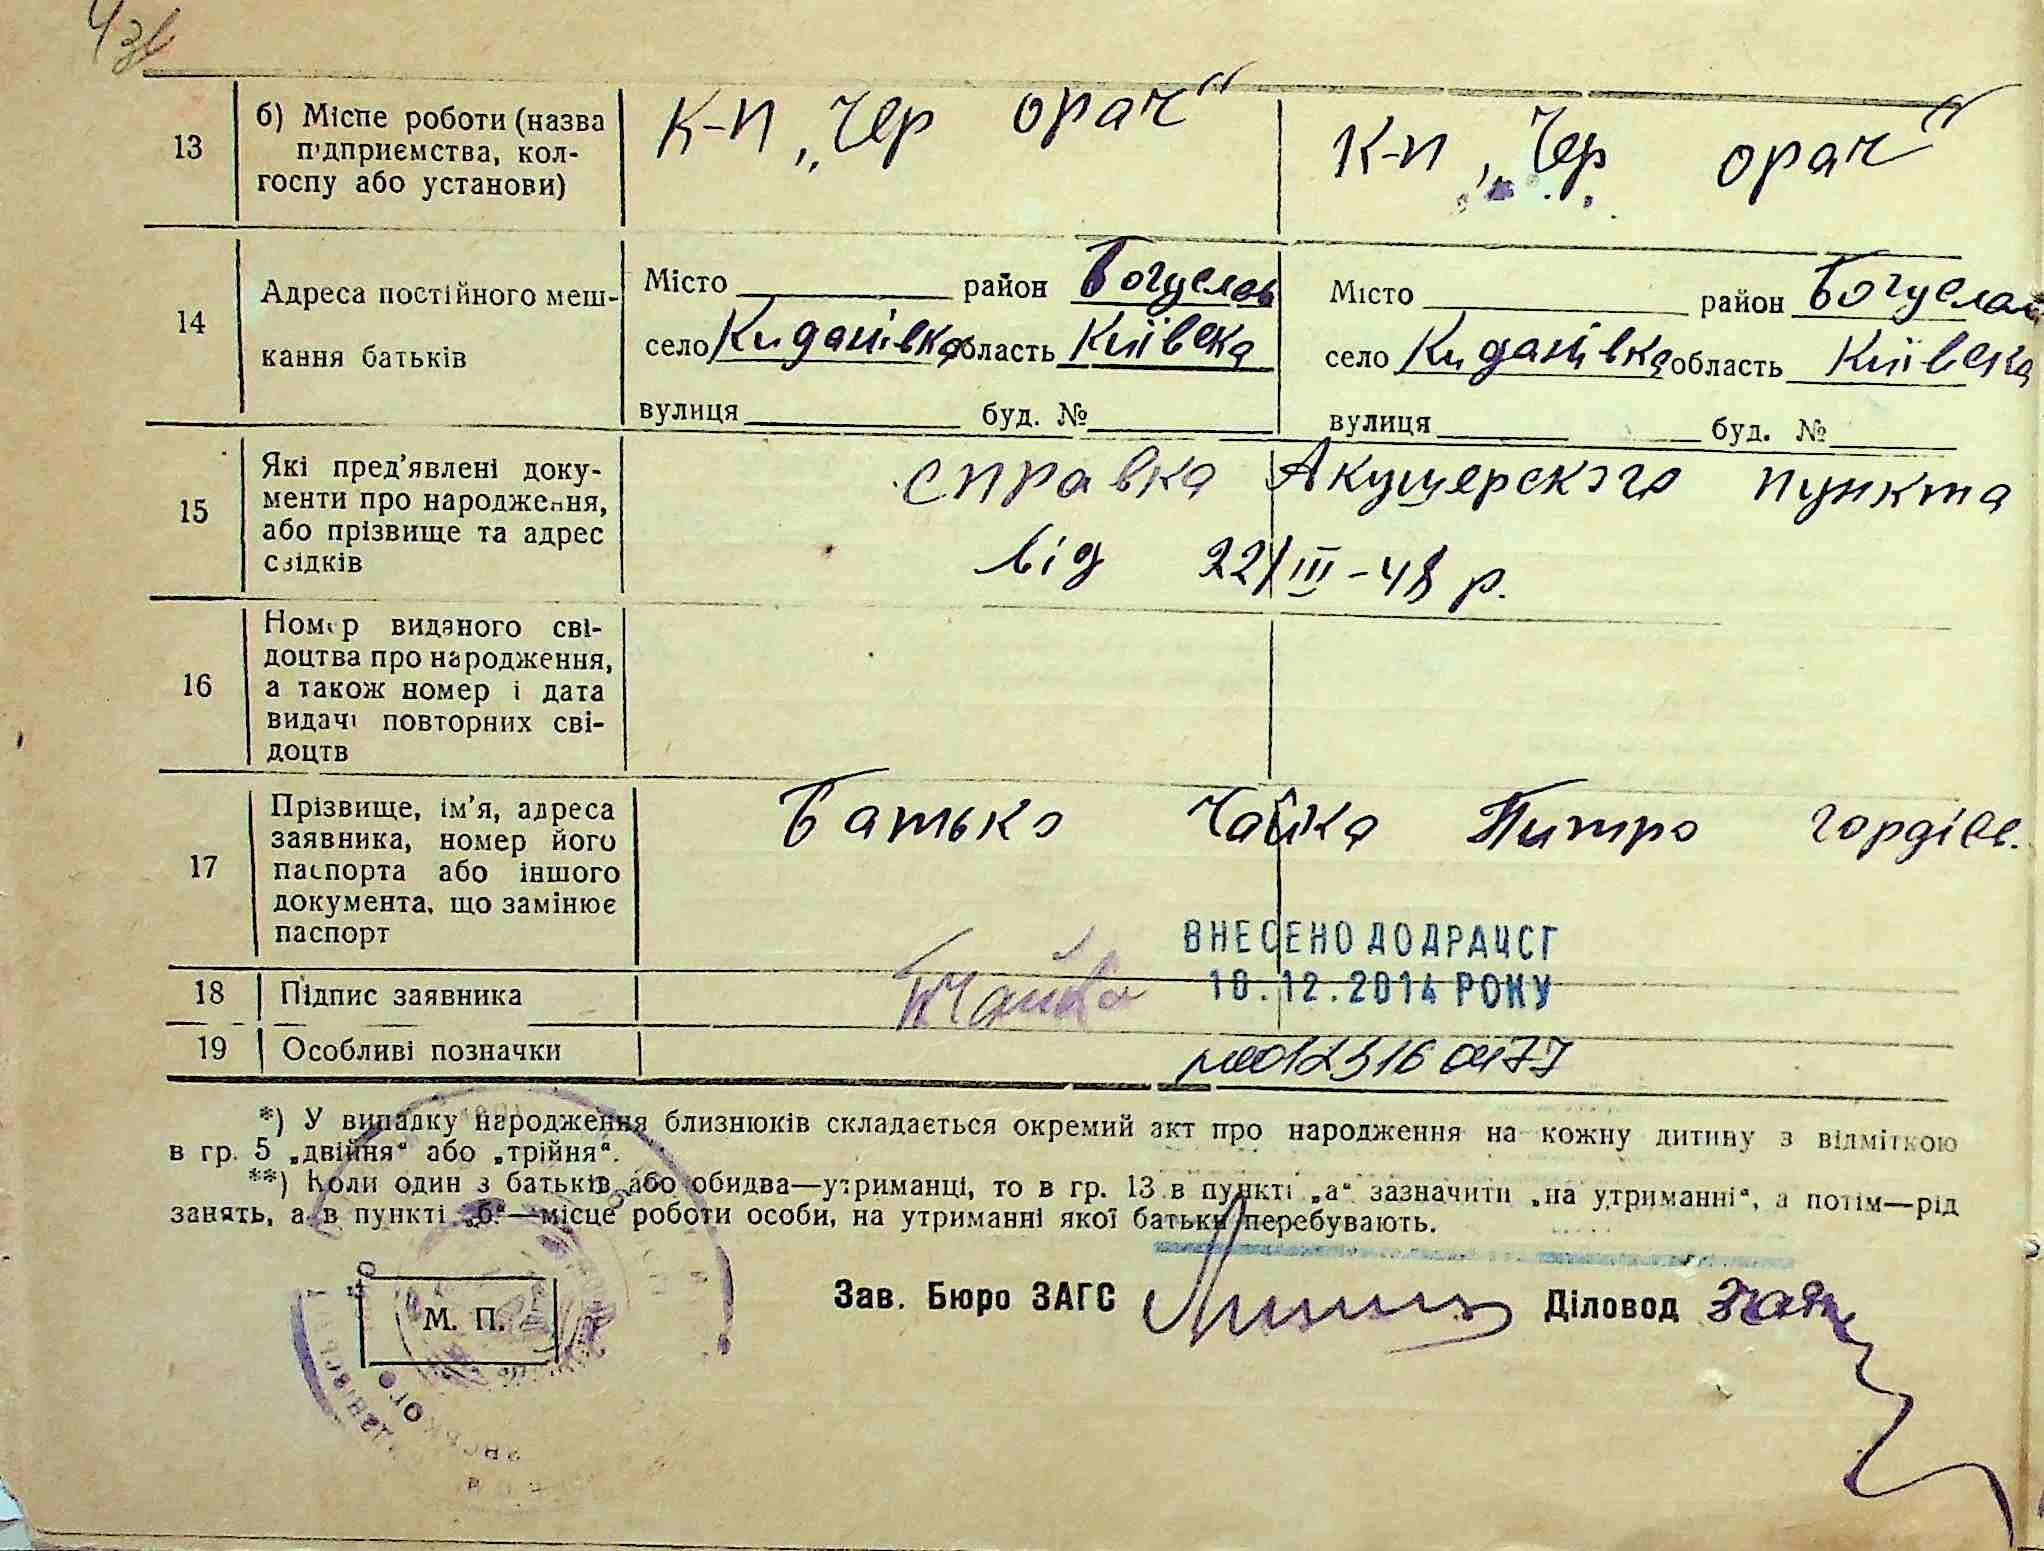 13
б) Місце роботи (назва
підприємства, кол-
госпу або установи)
К-п „Чер орач“
К-п „Чер орач“
14
Адреса постійного меш-
кання батьків
Місто район Богуслав
село Киданівка область Київска
вулиця буд. №
Місто район Богуслав
село Киданівка область Київска
вулиця буд. №
15
Які пред’явлені доку-
менти про народження,
або прізвище та адрес
свідків
справка Акушерского пункта
від 22/III-48 р.
16
Номер виданого сві-
доцтва про народження,
а також номер і дата
видачі повторних сві-
доцтв
17
Прізвище, ім’я, адреса
заявника, номер його
паспорта або іншого
документа, що замінює
паспорт
Батько Чайка Питро Гордієв.
ВНЕСЕНО ДО ДРАЦСГ
10.12.2014 РОКУ
18
Підпис заявника
Чайка
19
Особливі позначки
*) У випадку народження близнюків складається окремий акт про народження на кожну дитину з відміткою
в гр. 5 „двійня“ або „трійня“.
**) Коли один з батьків або обидва—утриманці, то в гр. 13 в пункті „а“ зазначити „на утриманні“, а потім—рід
занять, а в пункті „б“—місце роботи особи, на утриманні якої батьки перебувають.
М. П.
Зав. Бюро ЗАГС
Діловод